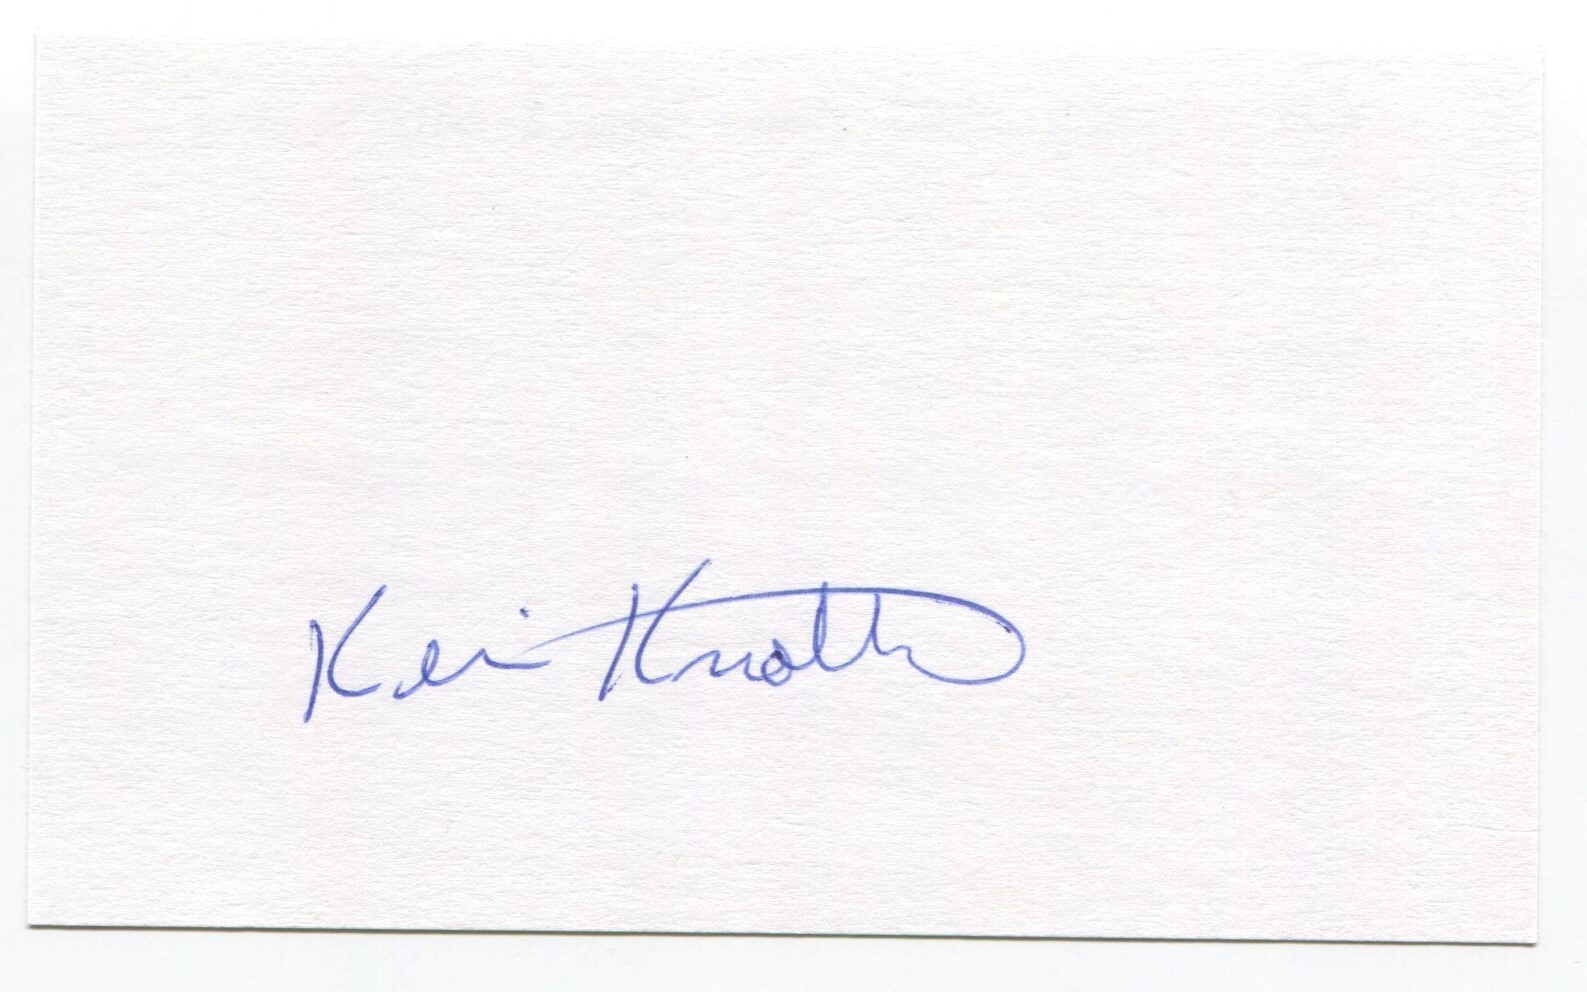 Kevin Knotts